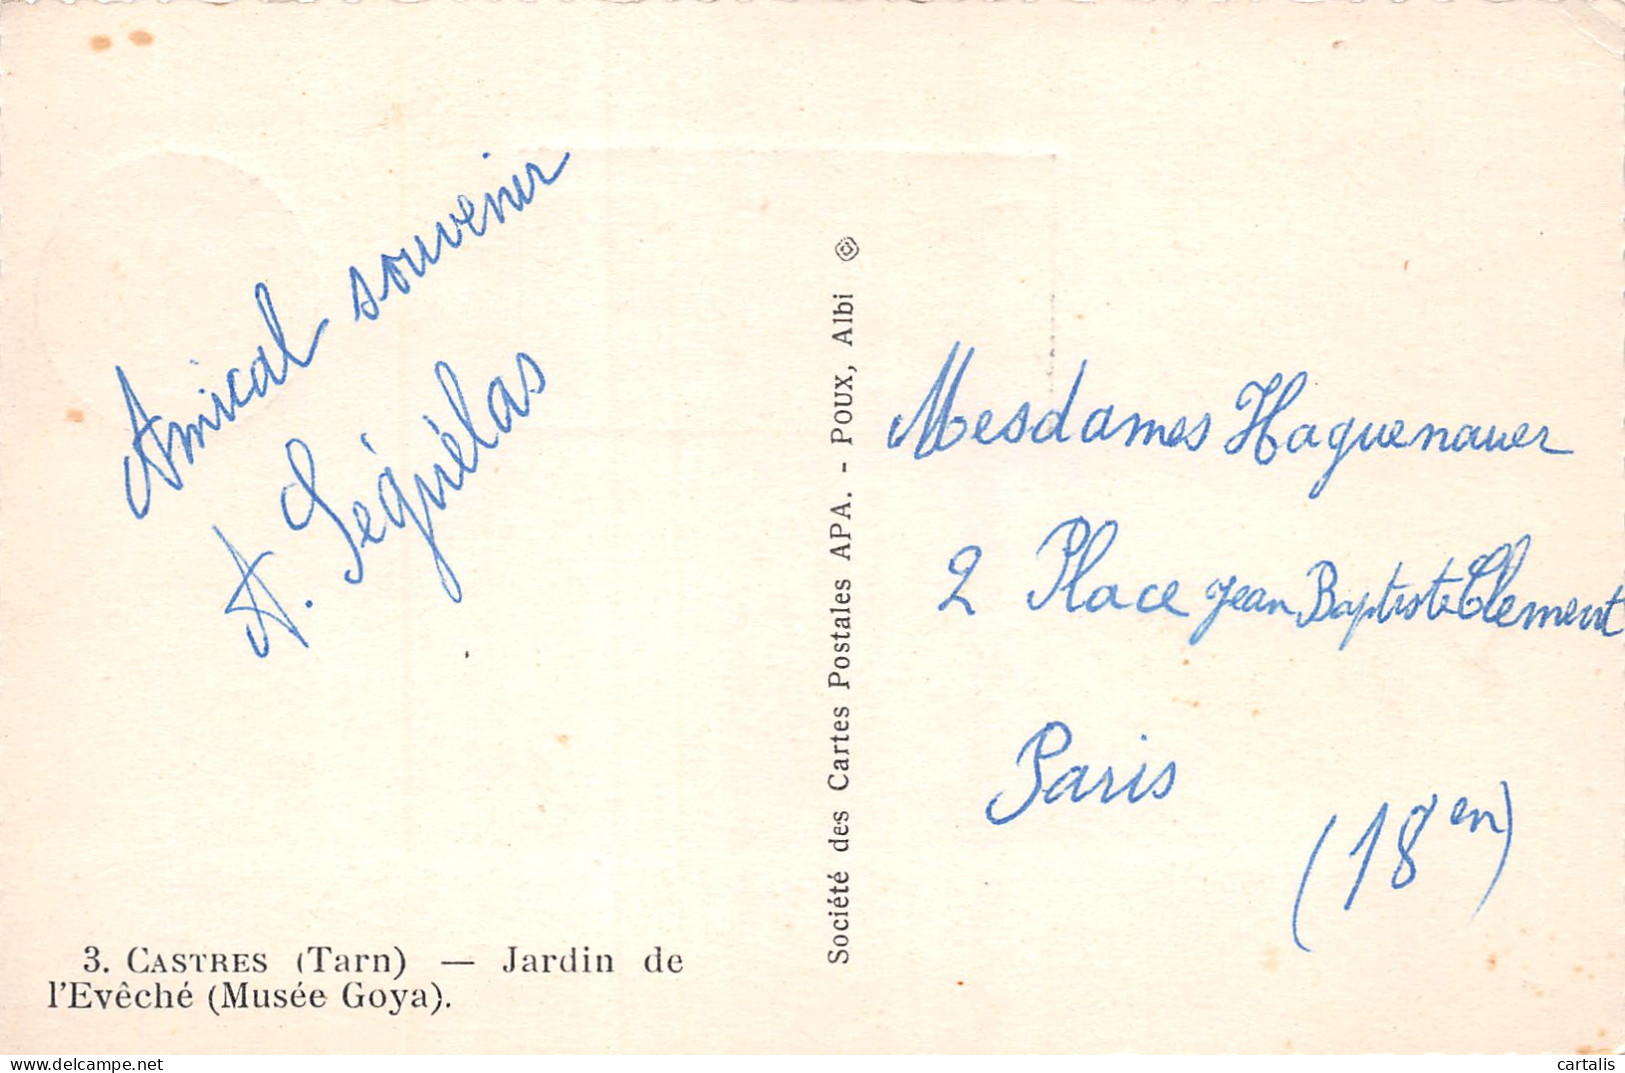 Amical souvenir
A. Séguélas
3. CASTRES (Tarn) — Jardin de
l'Evêché (Musée Goya).
Société des Cartes Postales APA. - POUX, Albi
Mesdames Haguenauer
2 Place Jean Baptiste Clement
Paris
(18en)
www.delcampe.net
cartalis